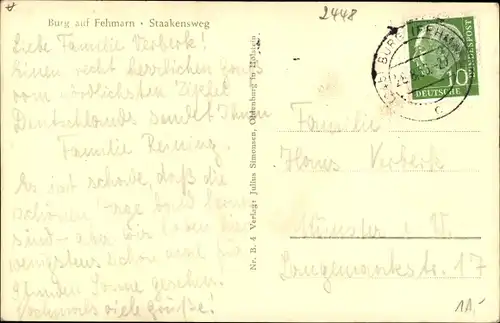 Burg auf Fehmarn • Staakensweg
2448
Liebe Familie Verbeck!
Einen recht herzlichen Gruß
vom nördlichsten Zipfel
Deutschlands sendet Ihnen
Familie
Es ist schade, daß die
schönen Tage bald
sind – aber wir haben
wenigstens schon mal für
Stunden Sonne gesehen.
Nochmals viele Grüße!
Nr. B. 4 Verlag: Julius Simonsen, Oldenburg in Holstein
BURG (FEHMARN)
c
10
DEUTSCHE
BUNDESPOST
Familie
Hans Verbeck
Münster i. W.
Langemarckstr. 17
1A,-